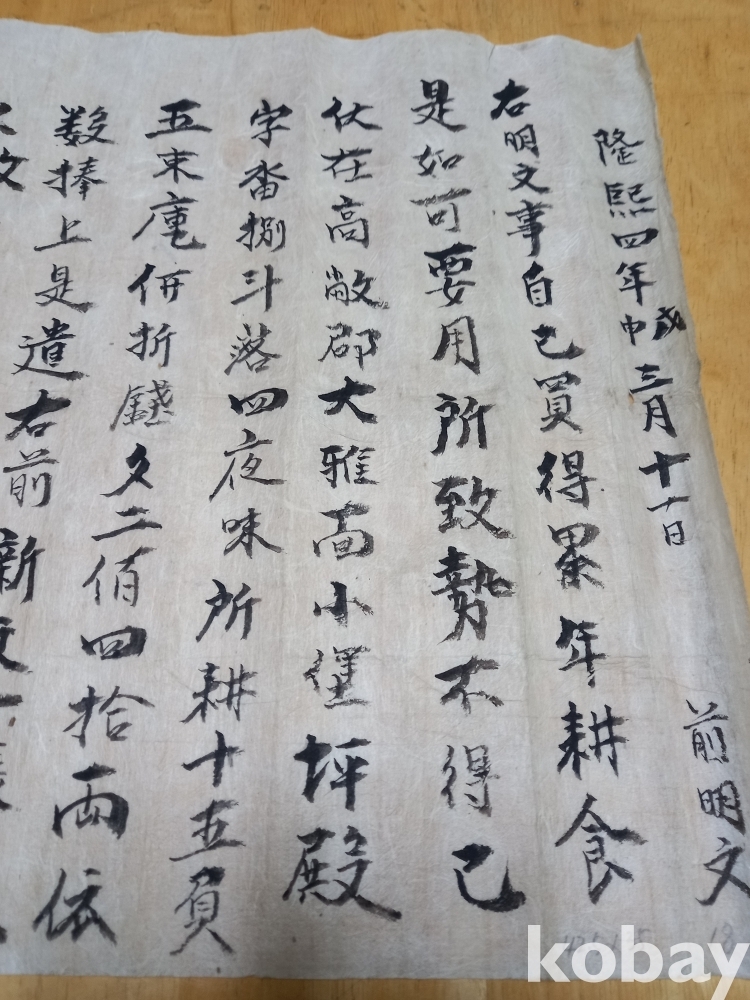 隆熙四年庚戌三月十一日 前明文
右明文事自己買得累年耕食
是如可要用所致勢不得已
伏在高敞郡大雅面小堡坪殿
字畓捌斗落四夜味所耕十五負
五束庫価折錢文二佰四拾両依
数捧上是遣右前
kobay